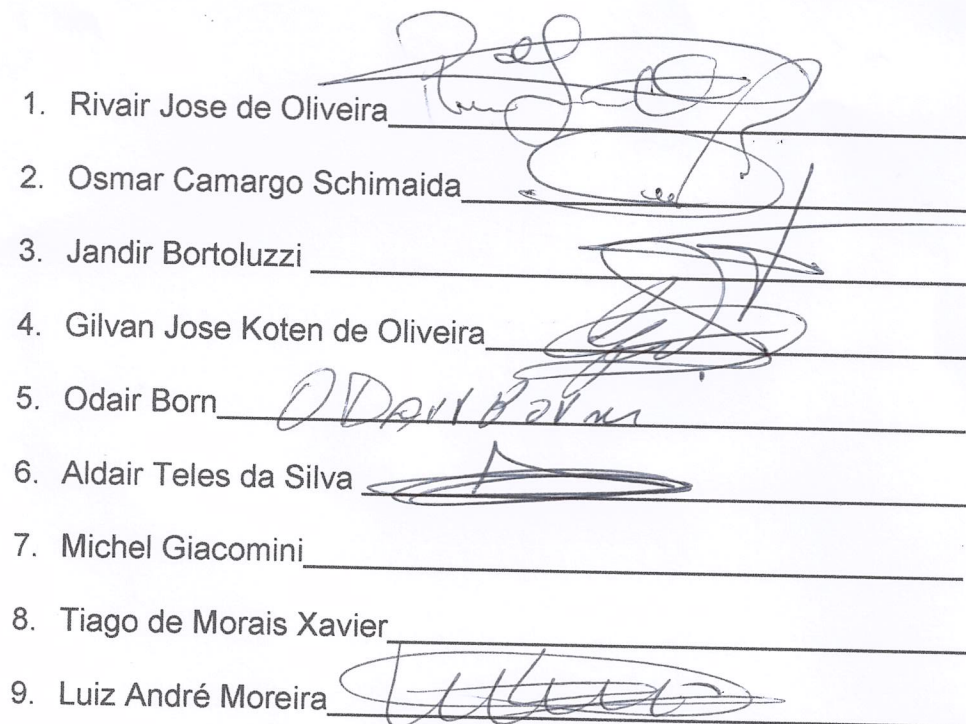 1. Rivair Jose de Oliveira
2. Osmar Camargo Schimaida
3. Jandir Bortoluzzi
4. Gilvan Jose Koten de Oliveira
5. Odair Born ODAir Born
6. Aldair Teles da Silva
7. Michel Giacomini
8. Tiago de Morais Xavier
9. Luiz André Moreira